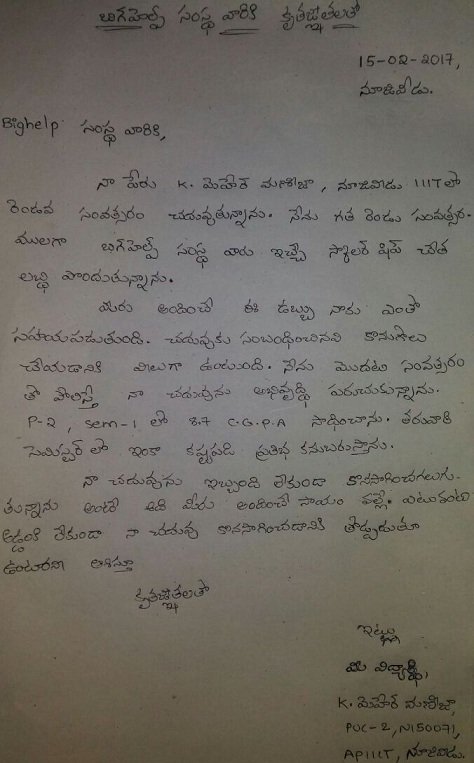 బిగ్‌హెల్ప్ సంస్థ వారికి కృతజ్ఞతలతో
15-02-2017,
నూజివీడు.
Bighelp సంస్థ వారికి,
నా పేరు K. మెహెర్ మణిజా, నూజివీడు IIITలో
రెండవ సంవత్సరం చదువుతున్నాను. నేను గత రెండు సంవత్సర-
ములుగా బిగ్‌హెల్ప్ సంస్థ వారు ఇచ్చే స్కాలర్ షిప్ చేత
లబ్ధి పొందుతున్నాను.
మీరు అందించే ఈ డబ్బు నాకు ఎంతో
సహాయపడుతుంది. చదువుకు సంబంధించినవి కొనుగోలు
చేయడానికి వీలుగా ఉంటుంది. నేను మొదటి సంవత్సరం
తో పోలిస్తే నా చదువును అభివృద్ధి పరుచుకున్నాను.
P-2, sem-1 లో 8.7 C.G.P.A సాధించాను. తరువాతి
సెమిస్టర్ లో ఇంకా కష్టపడి ప్రతిభ కనుబరుస్తాను.
నా చదువును ఇబ్బంది లేకుండా కొనసాగించగలుగు-
తున్నాను అంటే అది మీరు అందించే సాయం వల్లే. ఎటువంటి
అడ్డంకి లేకుండా నా చదువు కొనసాగించడానికి తోడ్పడుతూ
ఉంటారని ఆశిస్తూ
కృతజ్ఞతలతో
ఇట్లు
మీ విద్యార్థి,
K. మెహెర్ మణిజా,
PUC-2, N150071,
AP IIIT, నూజివీడు.